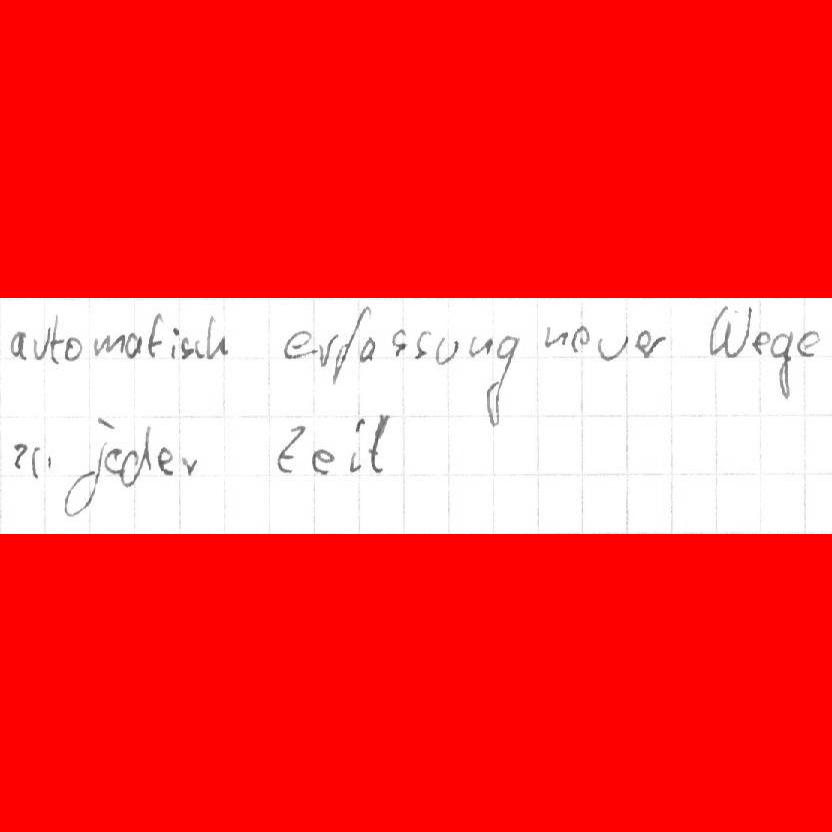 automatisch erfassung neuer Wege
zu jeder Zeit